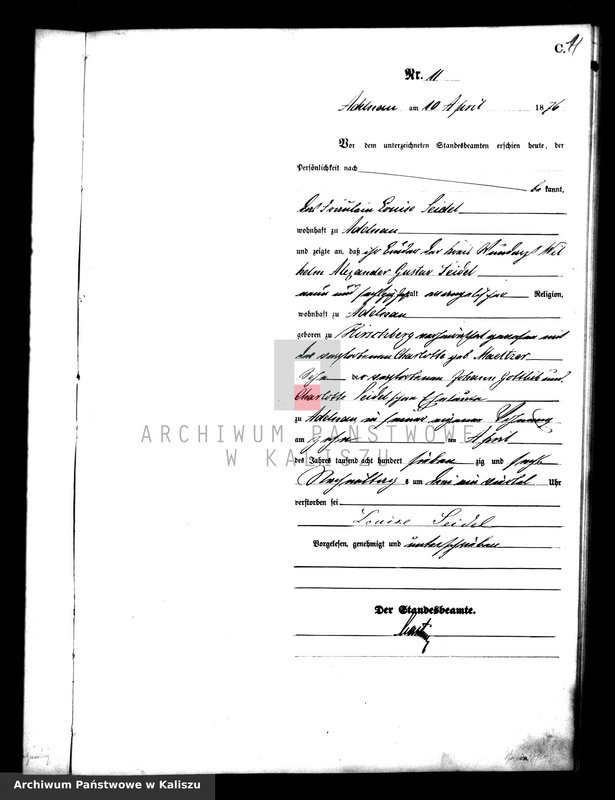 C. 11
Nr. 11
Adelnau am 10 April 1876
Vor dem unterzeichneten Standesbeamten erschien heute, der
Persönlichkeit nach
be kannt,
das Fräulein Louise Seidel
wohnhaft zu Adelnau
und zeigte an, daß ihr Bruder der Kreis Wundarzt Wil
helm Alexander Gustav Seidel
neun und sechzig Jahr alt evangelischer Religion,
wohnhaft zu Adelnau
geboren zu Hirschberg verheirathet gewesen mit
der verstorbenen Charlotte geb.
Sohn der verstorbenen Johann Gottlieb und
Charlotte Seidel'schen Eheleute
zu Adelnau in seiner eigenen Wohnung
am zehn ten April
des Jahres tausend acht hundert sieben zig und sechs
Nachmittags um drei ein viertel Uhr
verstorben sei.
Louise Seidel
Vorgelesen, genehmigt und unterschrieben
Der Standesbeamte.
ARCHIWUM PAŃSTWOWE
W KALISZU
Archiwum Państwowe w Kaliszu